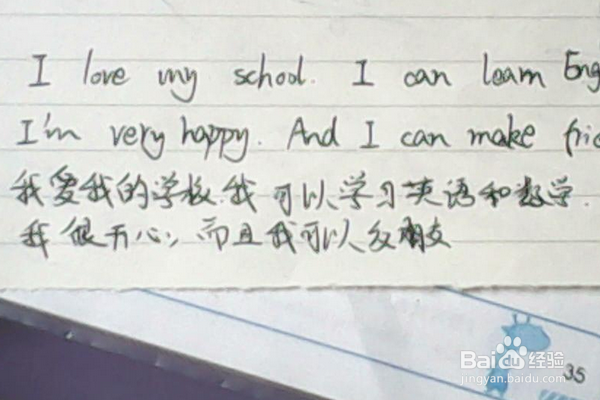 I love my school. I can learn Eng
I'm very happy. And I can make frie
我爱我的学校.我可以学习英语和数学.
我很开心,而且我可以交朋友
Bai du 经验
jingyan.baidu.com
35